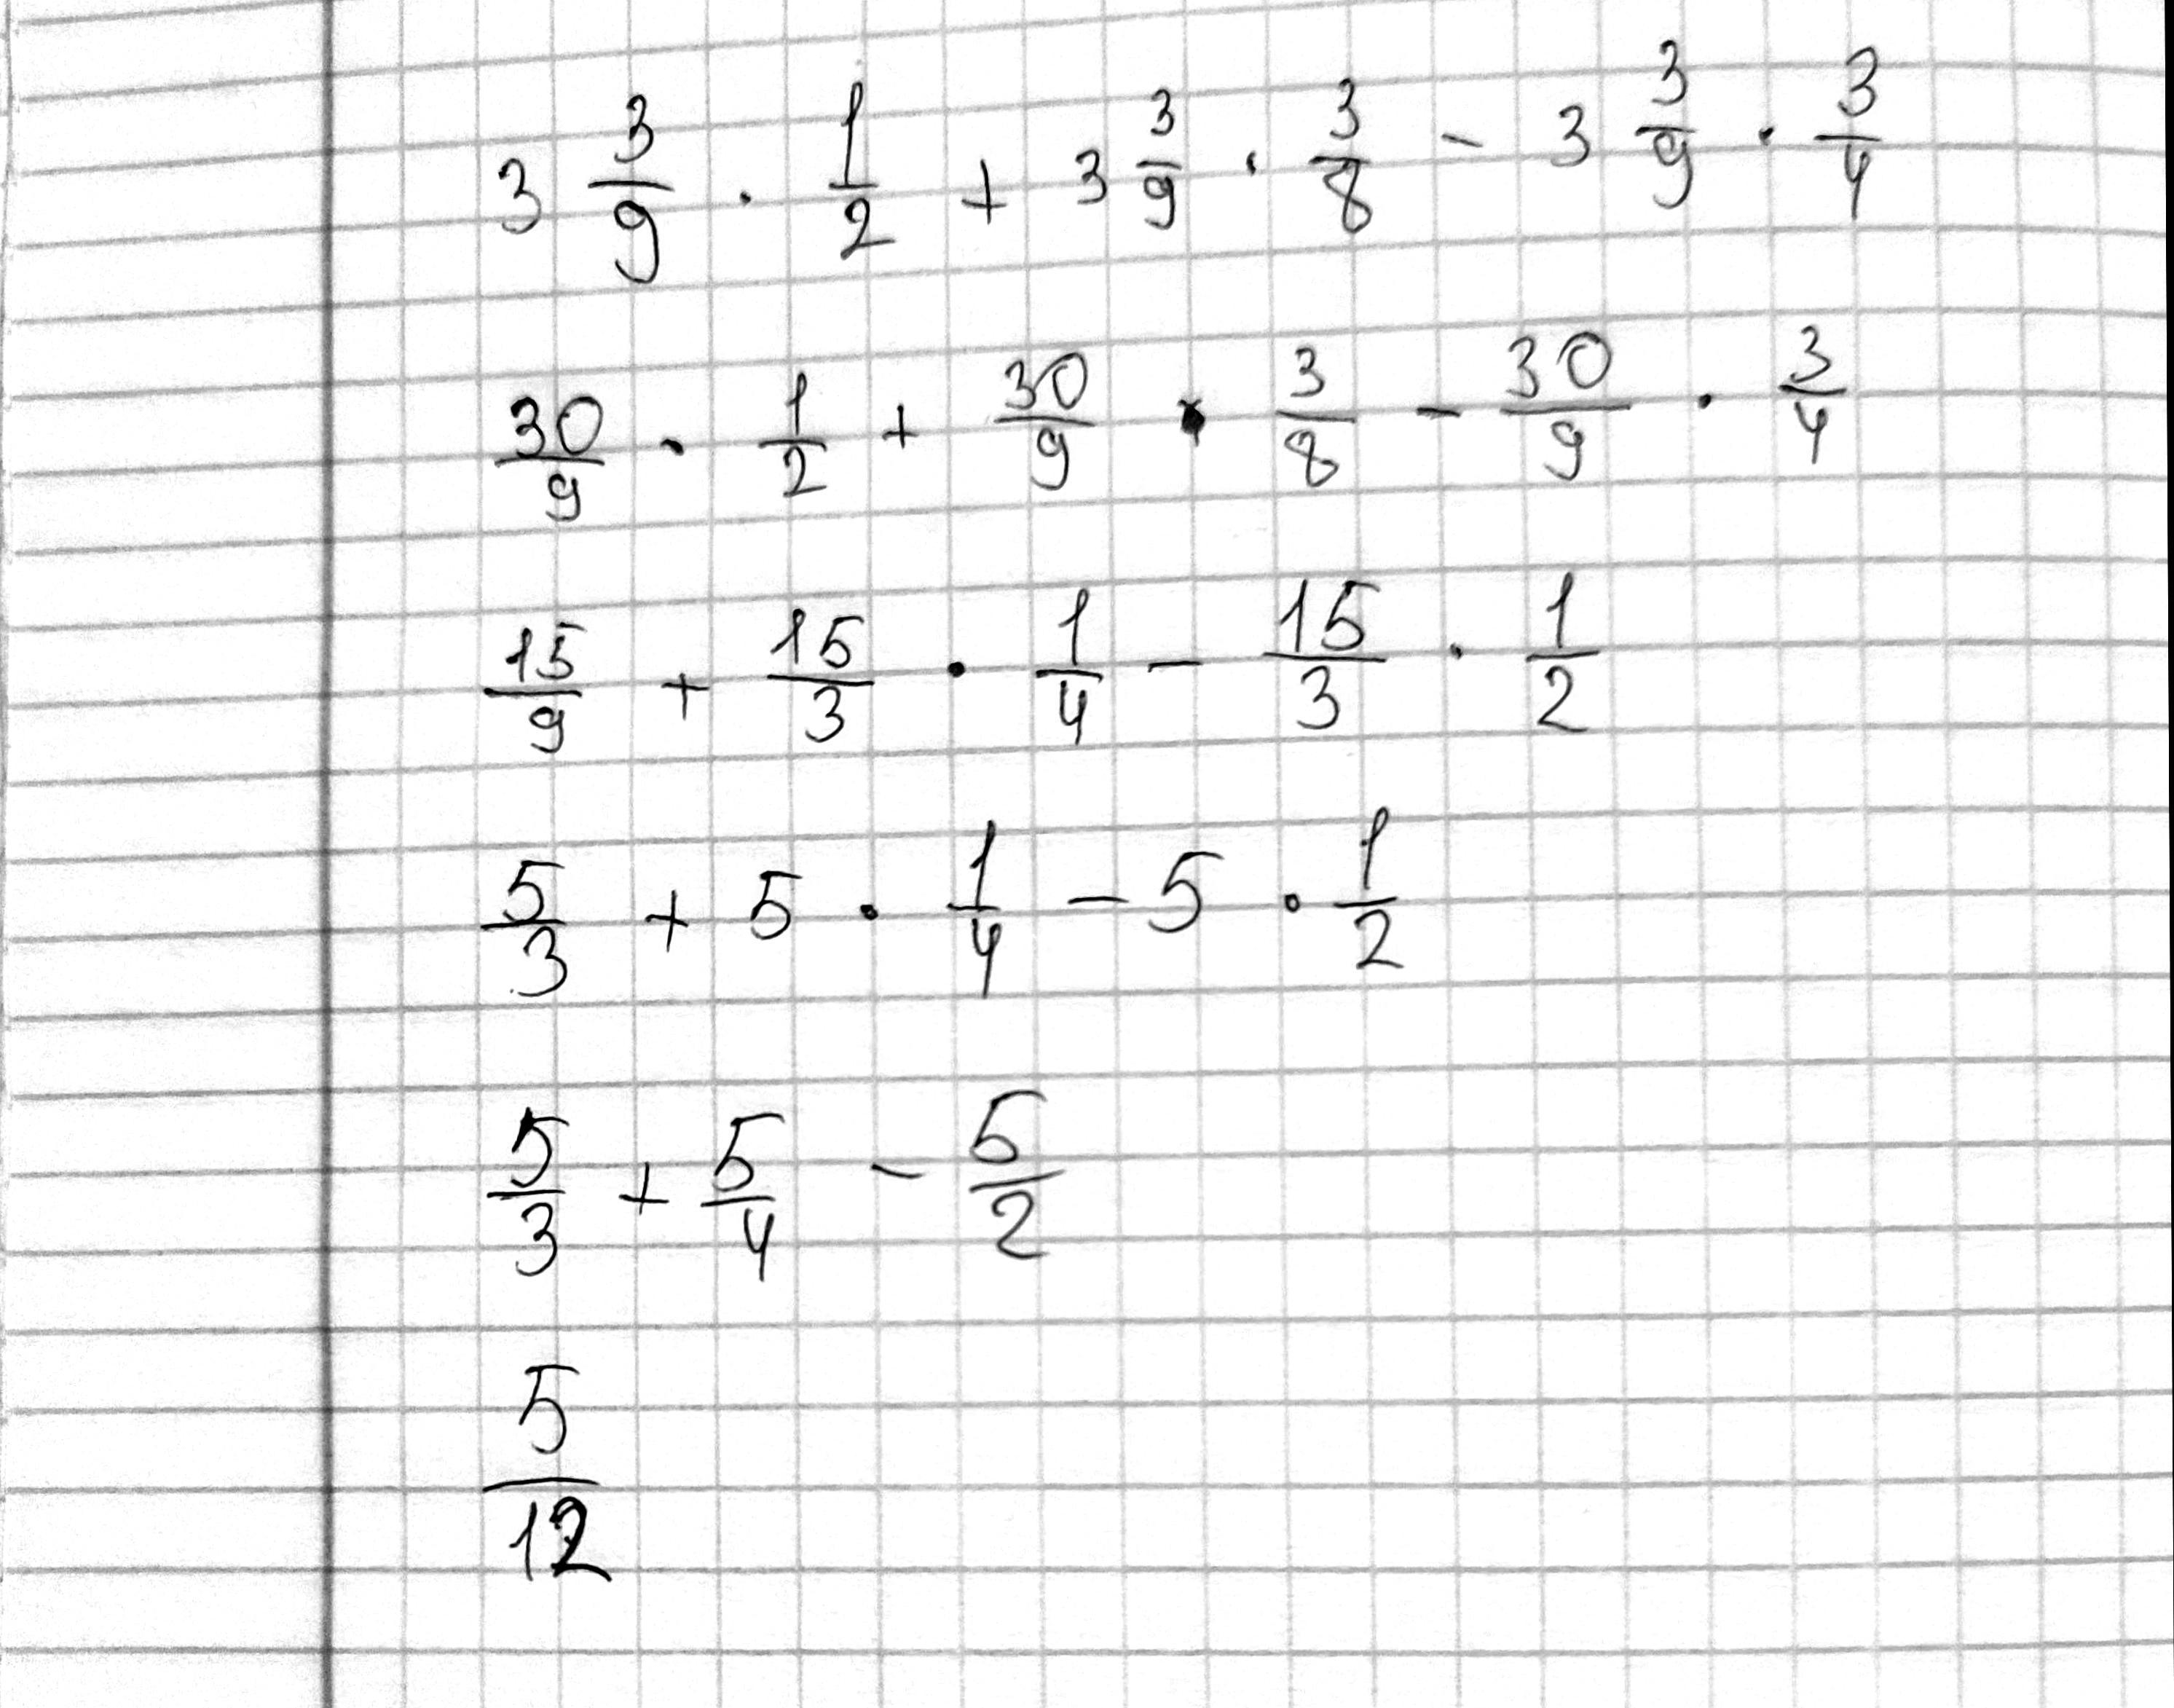 3 3/9 · 1/2 + 3 3/9 · 3/8 - 3 3/9 · 3/4
30/9 · 1/2 + 30/9 · 3/8 - 30/9 · 3/4
15/9 + 15/3 · 1/4 - 15/3 · 1/2
5/3 + 5 · 1/4 - 5 · 1/2
5/3 + 5/4 - 5/2
5/12